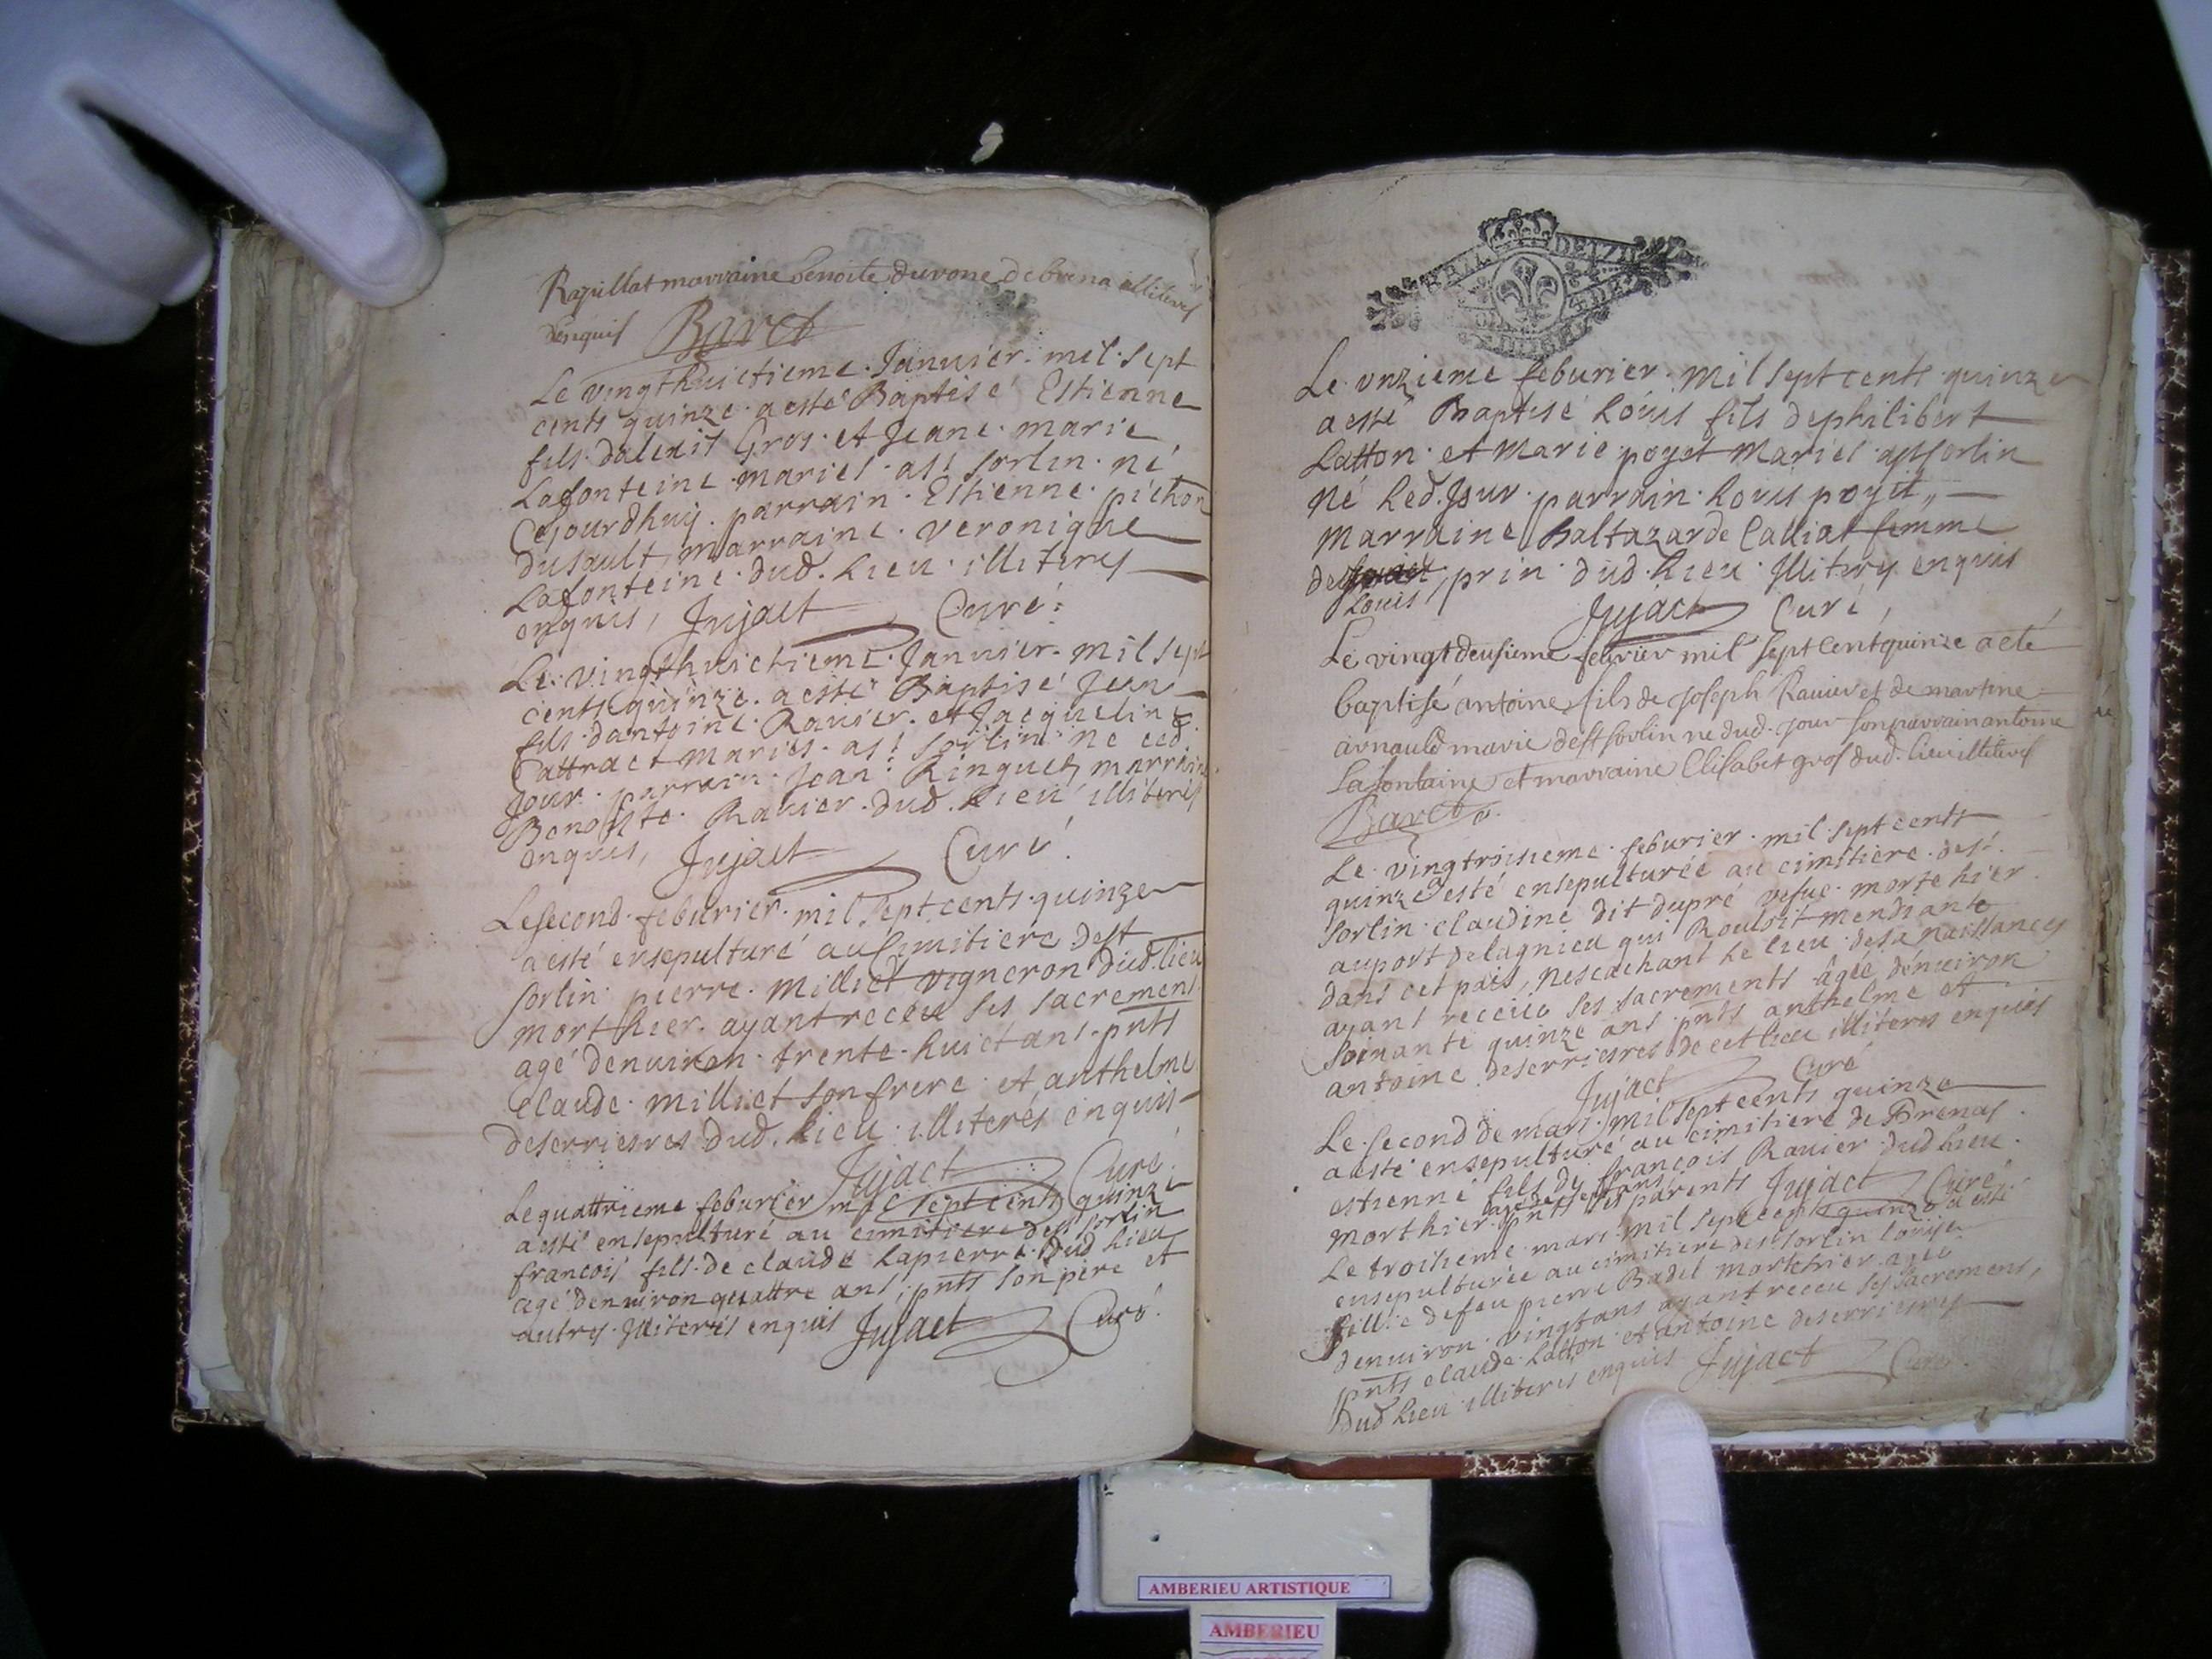 Rapillat marraine benoite duvone de brena illiteres
enquis Baret
Le vingthuictieme Janvier mil sept
cents quinze a esté Baptisé Estienne
fils dalexis Gros et Jeane marie
Lafonteine mariés a st sorlin né
Cejourdhuy parrain Estienne pichon
dusault, marraine veronique
Lafonteine dud. Lieu illiteres
enquis, Jujact Curé
Le vingthuictieme Janvier mil sept
cents quinze a esté Baptisé Jean
fils dantoine Ravier et Jacqueline
Cattract mariés a st sorlin né ced.
Jour parrain Jean Ringuet marraine
Benoiste Ravier dud. Lieu illiterés
enquis, Jujact Curé
Le second feburier mil sept cents quinze
a esté ensepulturé au Cimitiere de st
sorlin pierre milliet vigneron dud. lieu
mort hier ayant receu ses sacremens
agé denuiron trente huict ans pnts
Claude milliet son frere et anthelme
deserriesres dud. Lieu illiterés enquis
Jujact Curé
Le quattrieme feburier mil sept cents quinze
a esté ensepulturé au cimitiere de st sorlin
francois fils de claude Lapierre dud Lieu
agé denuiron quattre ans, pnts son pere et
autres Illiterés enquis Jujact Curé
Le vnzieme feburier mil sept cents quinze
a esté Baptisé Louis fils de philibert
Latton et Marie poyet Mariés a st sorlin
Né Led. Jour parrain Louis poyet,,
Marraine Baltazarde Calliat femme
de
Louis prin dud. Lieu Illiterés enquis
Jujact Curé,
Le vingt deusieme feuvrier mil sept cent quinze a eté
baptisé antoine fils de Joseph Ravier et de martine
arnauld marié de st sorlin ne dud. jour son parrain antoine
Lafontaine et marraine Elisabet gros dud. lieu illiteres
Baret
Le vingtroisieme feburier mil sept cents
quinze a esté ensepulturée au cimitiere de st
sorlin claudine dit dupré vefue morte hier
au port de lagnieu qui Rouloit mendiante
dans cet païs, Nescachant Le lieu de sa naissances
ayant receue ses sacrements âgée denuiron
soixante quinze ans pnts anthelme et
antoine deserriesres de cet lieu illiteres enquis
Jujact Curé
Le second de mars mil sept cents quinze
a esté ensepulturé au cimitiere de Brenas
estienne fils de francois Ravier dud Lieu
agé de sept ans
mort hier pnts ses parents Jujact Curé
Le troisieme mars mil sept cents quinze a esté
ensepulturée au cimitiere de st sorlin louise
fillie de feu pierre Badel morte hier agée
denuiron vingt ans ayant receu ses sacremens,
pnts claude Latton et antoine deserriesres
dud Lieu illiteres enquis Jujact Curé
AMBERIEU ARTISTIQUE
AMBERIEU